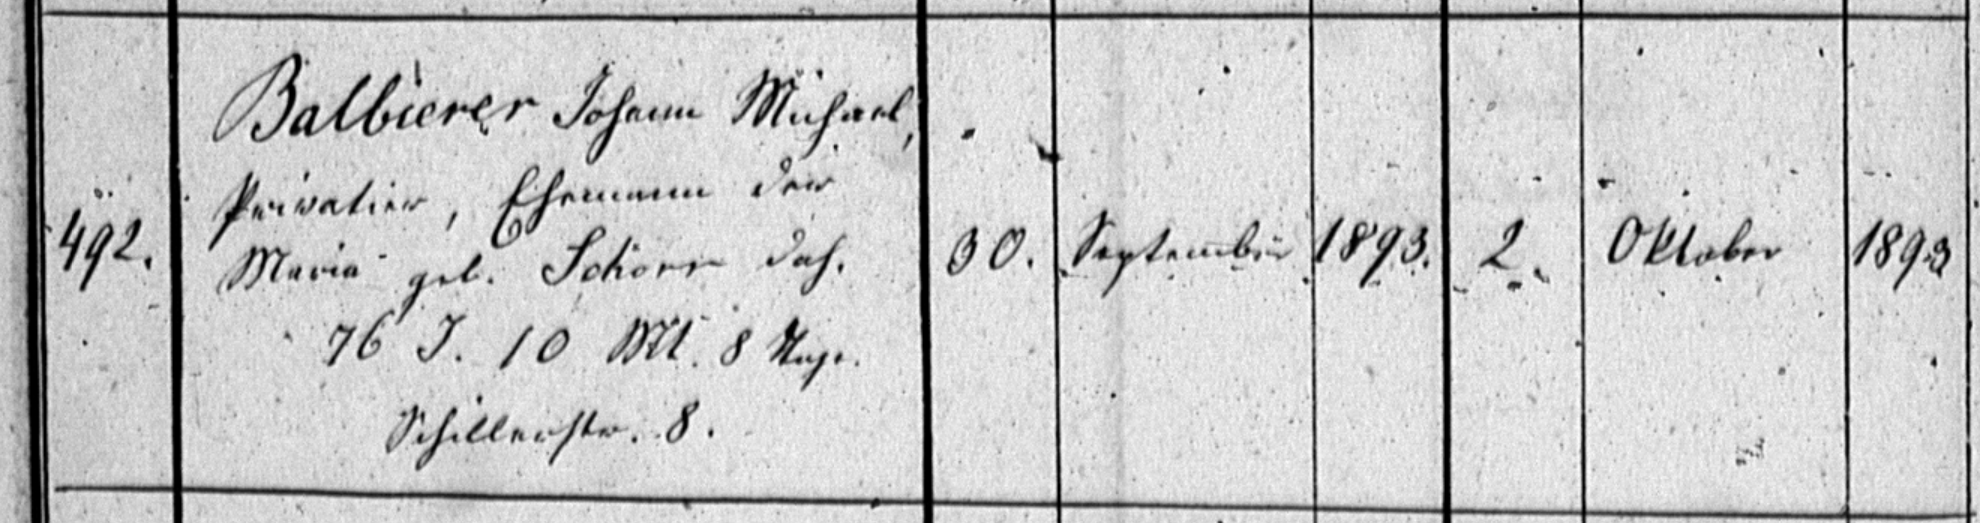 Balbierer Johann Michael,
Privatier, Ehemann der
492. Maria geb. Schorr dah. 30. September 1893. 2. Oktober 1893
76 J. 10 Mt. 8 Tage.
Schillerstr. 8.